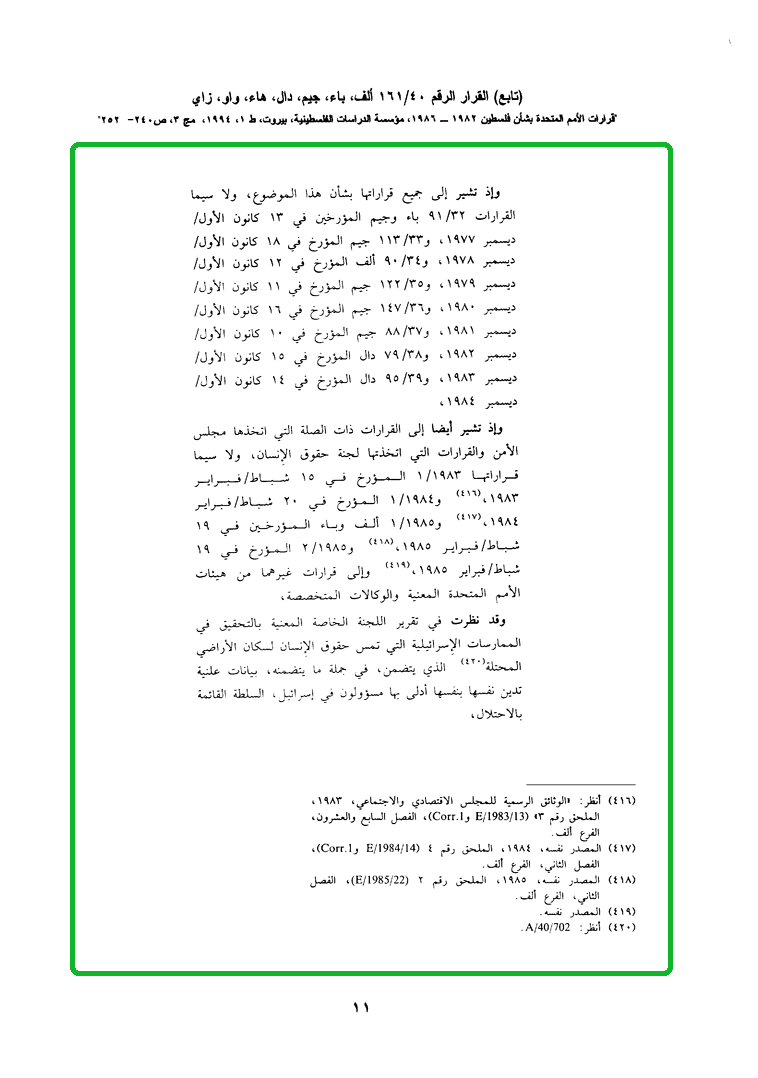 (تابع) القرار الرقم ١٦١/٤٠ ألف، باء، جيم، دال، هاء، واو، زاي
"قرارات الأمم المتحدة بشأن فلسطين ١٩٨٢ – ١٩٨٦، مؤسسة الدراسات الفلسطينية، بيروت، ط ١، ١٩٩٤، مج ٣، ص٢٤٠- ٢٥٢"
وإذ تشير إلى جميع قراراتها بشأن هذا الموضوع، ولا سيما
القرارات ٩١/٣٢ باء وجيم المؤرخين في ١٣ كانون الأول/
ديسمبر ١٩٧٧، و١١٣/٣٣ جيم المؤرخ في ١٨ كانون الأول/
ديسمبر ١٩٧٨، و٩٠/٣٤ ألف المؤرخ في ١٢ كانون الأول/
ديسمبر ١٩٧٩، و١٢٢/٣٥ جيم المؤرخ في ١١ كانون الأول/
ديسمبر ١٩٨٠، و١٤٧/٣٦ جيم المؤرخ في ١٦ كانون الأول/
ديسمبر ١٩٨١، و٨٨/٣٧ جيم المؤرخ في ١٠ كانون الأول/
ديسمبر ١٩٨٢، و٧٩/٣٨ دال المؤرخ في ١٥ كانون الأول/
ديسمبر ١٩٨٣، و٩٥/٣٩ دال المؤرخ في ١٤ كانون الأول/
ديسمبر ١٩٨٤،
وإذ تشير أيضا إلى القرارات ذات الصلة التي اتخذها مجلس
الأمن والقرارات التي اتخذتها لجنة حقوق الإنسان، ولا سيما
قراراتها ١/١٩٨٣ المؤرخ في ١٥ شباط/فبراير
١٩٨٣،(٤١٦) و١/١٩٨٤ المؤرخ في ٢٠ شباط/فبراير
١٩٨٤،(٤١٧) و١/١٩٨٥ ألف وباء المؤرخين في ١٩
شباط/فبراير ١٩٨٥،(٤١٨) و٢/١٩٨٥ المؤرخ في ١٩
شباط/فبراير ١٩٨٥،(٤١٩) وإلى قرارات غيرهما من هيئات
الأمم المتحدة المعنية والوكالات المتخصصة،
وقد نظرت في تقرير اللجنة الخاصة المعنية بالتحقيق في
الممارسات الإسرائيلية التي تمس حقوق الإنسان لسكان الأراضي
المحتلة(٤٢٠) الذي يتضمن، في جملة ما يتضمنه، بيانات علنية
تدين نفسها بنفسها أدلى بها مسؤولون في إسرائيل، السلطة القائمة
بالاحتلال،
(٤١٦) أنظر: «الوثائق الرسمية للمجلس الاقتصادي والاجتماعي، ١٩٨٣،
الملحق رقم ٣» (E/1983/13 وCorr.1)، الفصل السابع والعشرون،
الفرع ألف.
(٤١٧) المصدر نفسه، ١٩٨٤، الملحق رقم ٤ (E/1984/14 وCorr.1)،
الفصل الثاني، الفرع ألف.
(٤١٨) المصدر نفسه، ١٩٨٥، الملحق رقم ٢ (E/1985/22)، الفصل
الثاني، الفرع ألف.
(٤١٩) المصدر نفسه.
(٤٢٠) أنظر: A/40/702.
١١